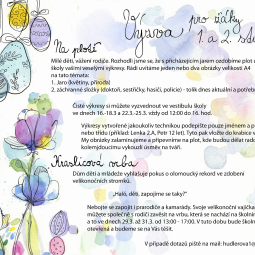 Výzva pro žáky
1. a 2. st
Na plotě
Milé děti, vážení rodiče. Rozhodli jsme se, že s přicházejícím jarem ozdobíme plot
školy vašimi veselými výkresy. Rádi uvítáme jeden nebo dva obrázky velikosti A4
na tato témata:
1. Jaro (květiny, příroda)
2. záchranné složky (doktoři, sestřičky, hasiči, policie) - tolik dnes aktuální a potřeb
Čisté výkresy si můžete vyzvednout ve vestibulu školy
ve dnech 16.-18.3 a 22.3.-25.3. vždy od 12:00 do 16 hod.
Výkresy vytvořené jakoukoliv technikou podepište pouze jménem a p
nebo třídu (příklad: Lenka 2.A, Petr 12 let). Tyto pak vložte do krabice v
My obrázky zalaminujeme a připevníme na plot, kde budou dělat rado
kolemjdoucímu vykouzlí úsměv na tváři.
Kraslicová vrba
Dům dětí a mládeže vyhlašuje pokus o olomoucký rekord ve zdobení
velikonočních stromků.
„Haló, děti, zapojíme se taky?"
Nebojte se zapojit i prarodiče a kamarády. Svoje velikonoční vajíčka
můžete společně s rodiči zavěsit na vrbu, která se nachází na školní
a to ve dnech 29.3. až 31.3. od 13:00 - 17:00. V tuto dobu bude škola
otevřená a budeme se na Vás těšit.
V případě dotazů pište na mail: hudlerova1@